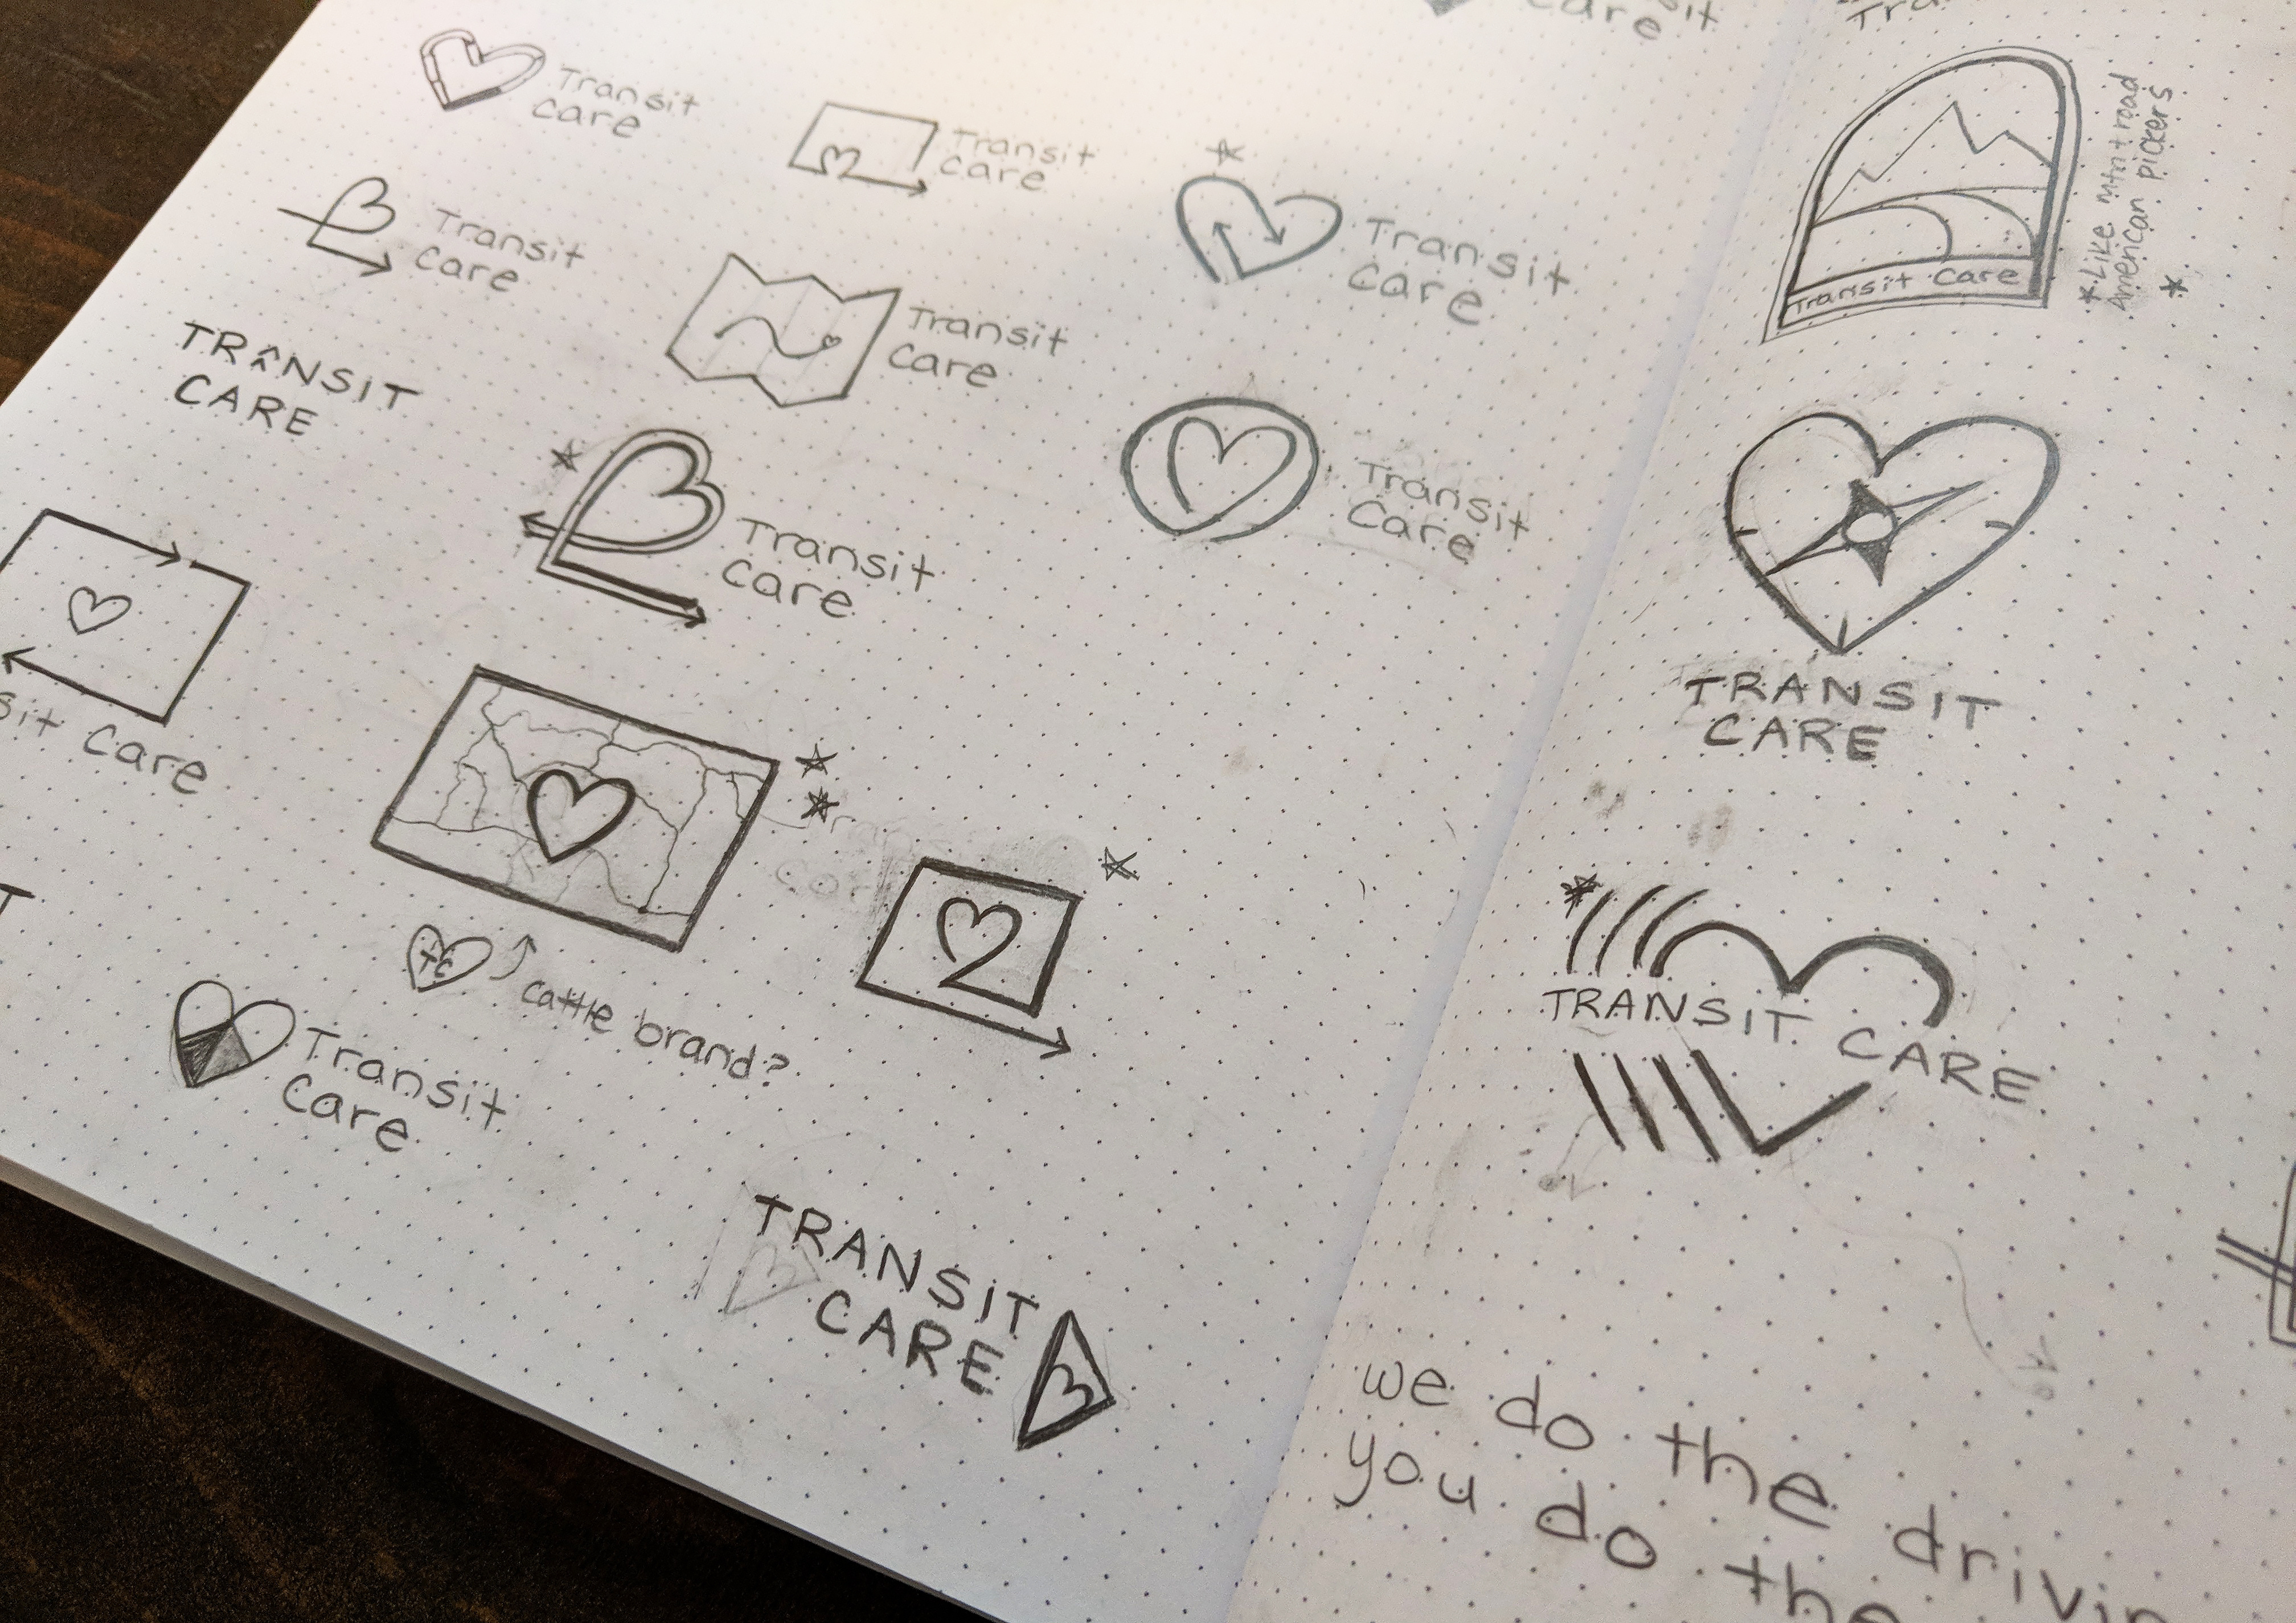 Transit
Care
Transit
Care
Transit
Care
Transit
Care
TRANSIT
CARE
Transit
Care
Transit
Care
Transit
Care
Care
Transit
Care
sit Care
TC
cattle brand?
Transit
Care
TRANSIT
CARE
Transit Care
*Like mtn + road
American pickers *
TRANSIT
CARE
TRANSIT CARE
or
we do the drivin
you do the